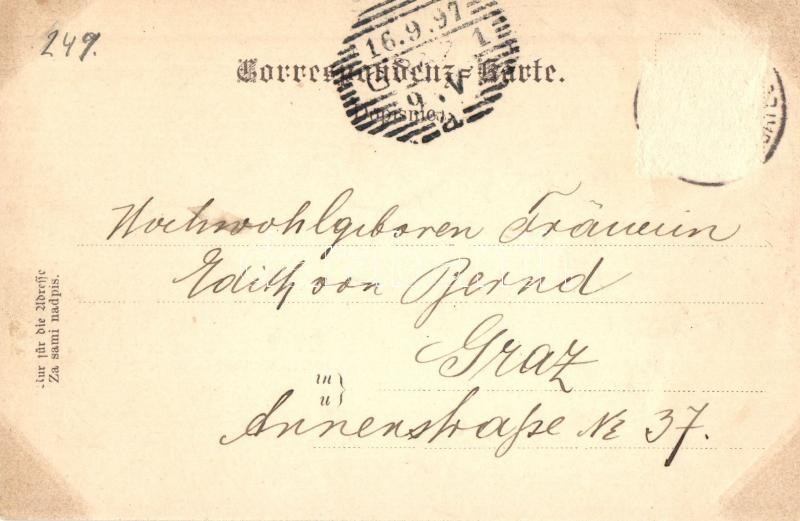 249.
16.9.97
1
9.V
Correspondenz-Karte.
Dopisnica.
Hochwohlgeboren Fräulein
Edith von Bernd
Graz
in
u
Annenstraße № 37.
Nur für die Adresse
Za sami nadpis.